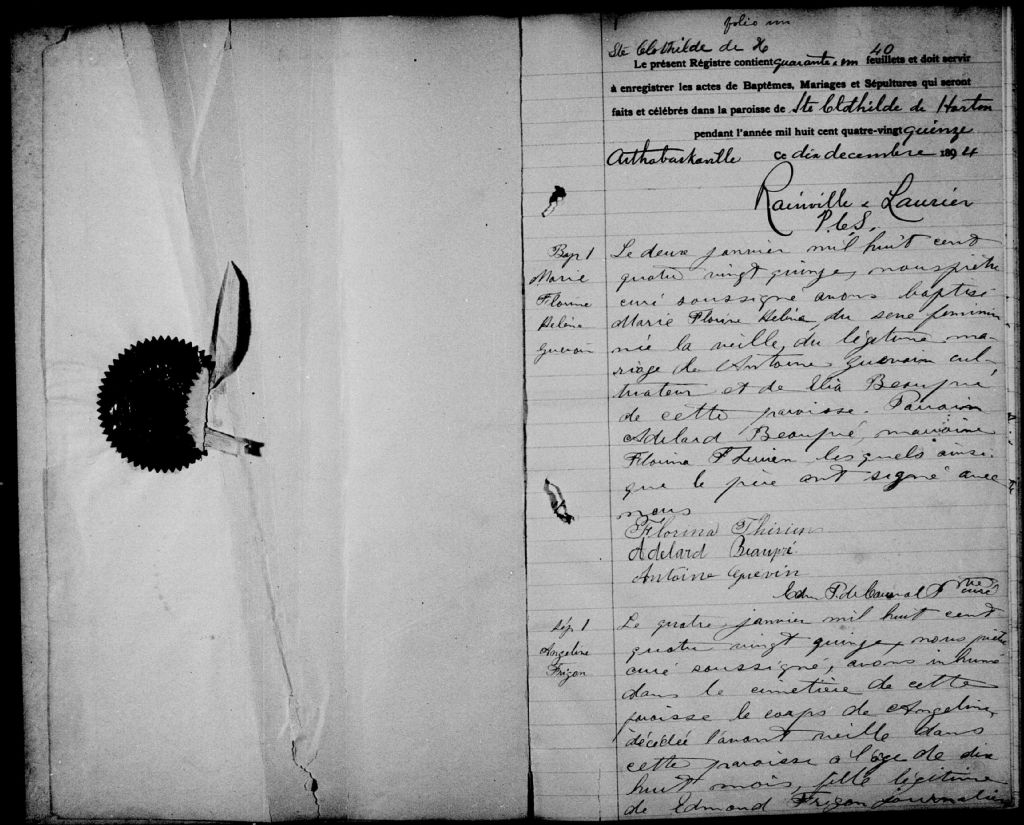 folio un
Ste Clothilde de H
40
Le présent Régistre contient quarante & un feuillets et doit servir
à enregistrer les actes de Baptêmes, Mariages et Sépultures qui seront
faits et célébrés dans la paroisse de Ste Clothilde de Horton
pendant l'année mil huit cent quatre-vingt quinze
Arthabaskaville Ce dix decembre 1894
Rainville & Laurier
P. C. S.
Bap 1
Marie
Florine
Heléna
Guévin
Le deux janvier mil huit cent
quatre vingt quinze, nous prêtre
curé soussigné avons baptisé
Marie Florine Heléna, du sexe féminin
née la veille, du légitime ma-
riage de Antoine cul-
tivateur et de Elia Beaupré
de cette paroisse. Parrain
Adelard Beaupré, marraine
Florina lesquels ainsi
que le père ont signé avec
nous
Florina Thirien
Adelard Beaupré
Antoine Guévin
Edm P. de Courval Ptre curé
Sép. 1
Angeline
Frigon
Le quatre janvier mil huit cent
quatre vingt quinze, nous prêtre
curé soussigné, avons inhumé
dans le cimetière de cette
paroisse le corps de Angeline,
décédée l'avant veille dans
cette paroisse a l'âge de dix
huit mois, fille légitime
de Edmond Frigon journalier